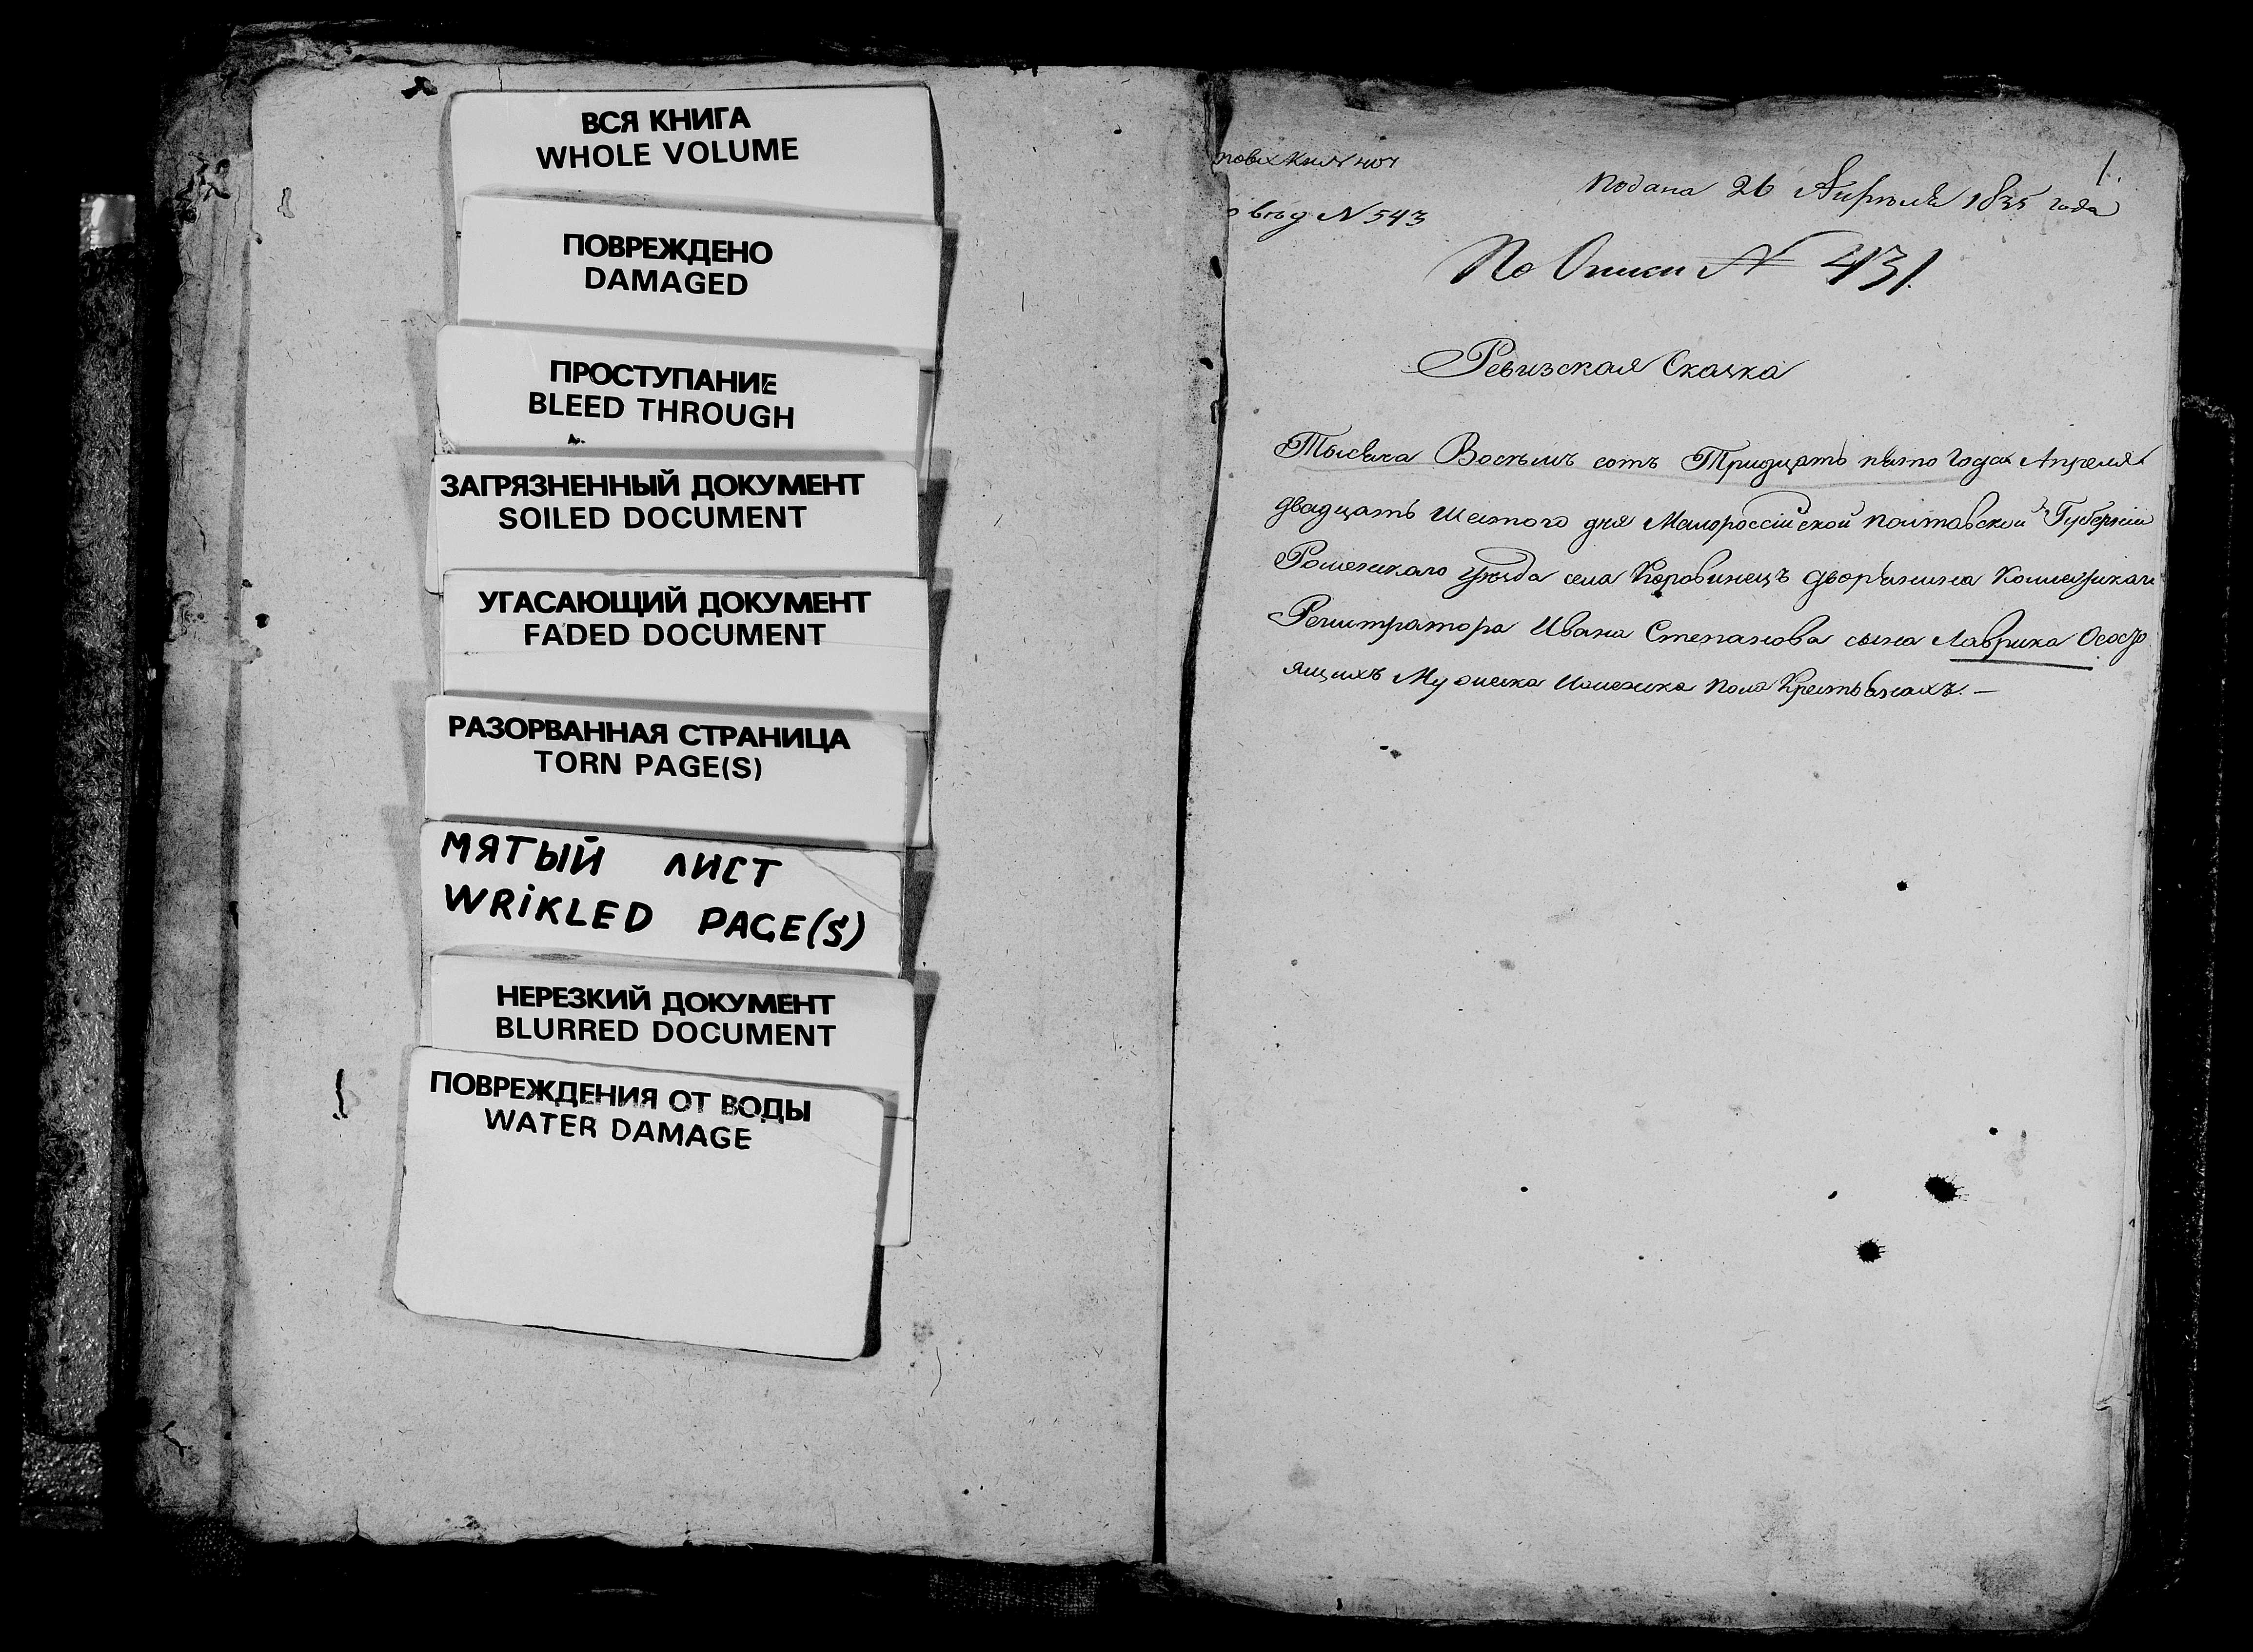 ВСЯ КНИГА
WHOLE VOLUME
ПОВРЕЖДЕНО
DAMAGED
ПРОСТУПАНИЕ
BLEED THROUGH
ЗАГРЯЗНЕННЫЙ ДОКУМЕНТ
SOILED DOCUMENT
УГАСАЮЩИЙ ДОКУМЕНТ
FADED DOCUMENT
РАЗОРВАННАЯ СТРАНИЦА
TORN PAGE(S)
МЯТЫЙ ЛИСТ
WRIKLED PAGE(S)
НЕРЕЗКИЙ ДОКУМЕНТ
BLURRED DOCUMENT
ПОВРЕЖДЕНИЯ ОТ ВОДЫ
WATER DAMAGE
1.
подана 26 Апреля 1835 года
N 543
По Описи № 431.
Ревизская Скаска
Тысяча Восемъ сотъ Тридцать пято года Апреля
двадцать Шестого дня Малороссійской полтавской Губерніи
Роменскаго уезда села Коровинецъ дворянина Колежскаго
Регитратора Ивана Степанова сына Лаврика Осостро
ящихъ Мужеска Иженска пола Крестьянахъ. —